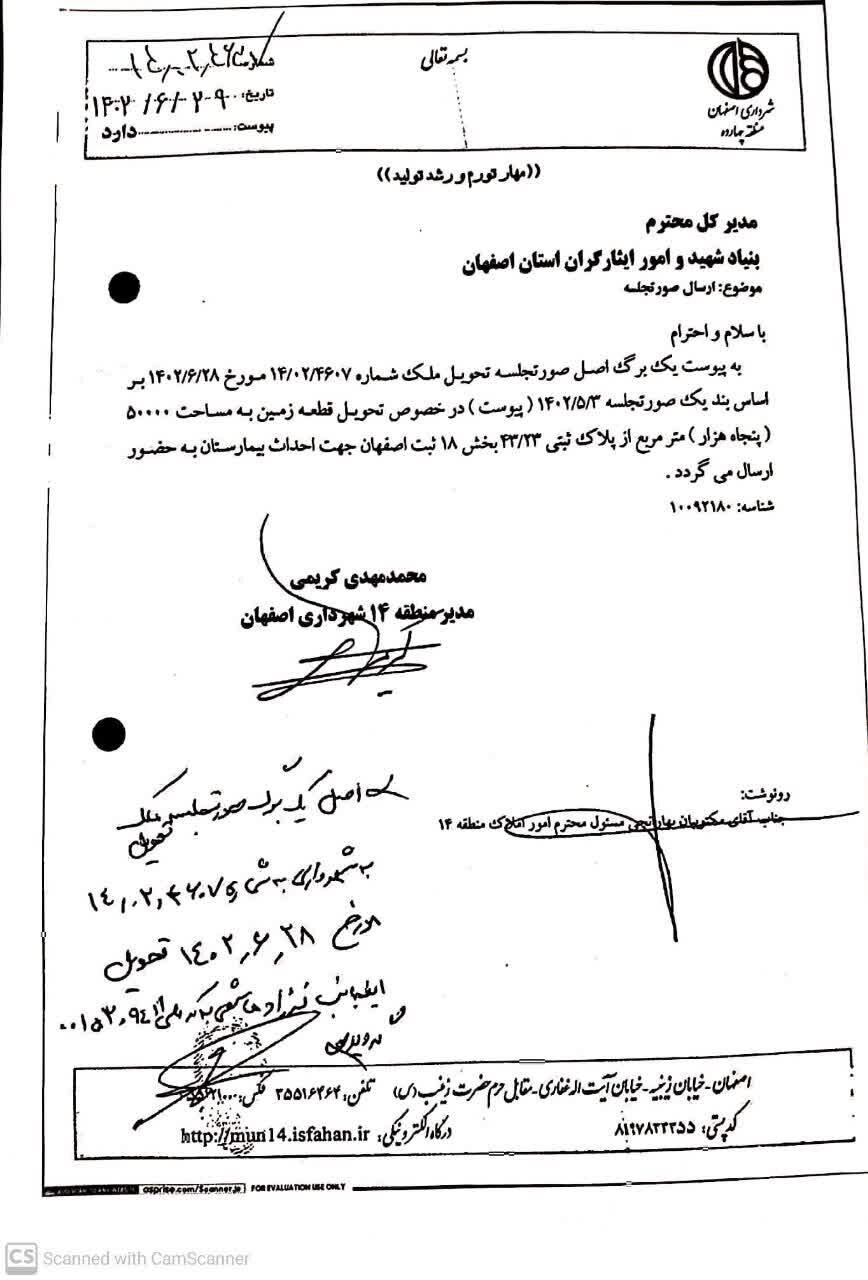 بسمه تعالی
شهرداری اصفهان
منطقه چهارده
شماره:
تاریخ: ۱۴۰۲/۶/۲۹
پیوست: دارد
((مهار تورم و رشد تولید))
مدیر کل محترم
بنیاد شهید و امور ایثارگران استان اصفهان
موضوع: ارسال صورتجلسه
با سلام و احترام
به پیوست یک برگ اصل صورتجلسه تحویل ملک شماره ۱۴/۰۲/۴۶۰۷ مورخ ۱۴۰۲/۶/۲۸ بر
اساس بند یک صورتجلسه ۱۴۰۲/۵/۳ ( پیوست ) در خصوص تحویل قطعه زمین به مساحت ۵۰۰۰۰
( پنجاه هزار ) متر مربع از پلاک ثبتی ۴۳/۲۳ بخش ۱۸ ثبت اصفهان جهت احداث بیمارستان به حضور
ارسال می گردد .
شناسه: ۱۰۰۹۲۱۸۰
محمدمهدی کریمی
مدیر منطقه ۱۴ شهرداری اصفهان
رونوشت:
جناب آقای مکتوبیان بهارانچی مسئول محترم امور املاک منطقه ۱۴
اصل یک برگ صورتجلسه ملک
تحویل
به شهرداری به شماره ۱۴،۰۲،۴۶۰۷
مورخ ۱۴۰۲،۶،۲۸ تحویل
اینجانب
گردید
اصفهان-خیابان زینبیه-خیابان آیت اله غفاری-مقابل حرم حضرت زینب (س) تلفن: ۳۵۵۱۶۴۶۴ فکس:
کدپستی: ۸۱۹۷۸۳۳۳۵۵ درگاه الکترونیکی: http://mun14.isfahan.ir
asprise.com/Scanner.js FOR EVALUATION USE ONLY
CS Scanned with CamScanner